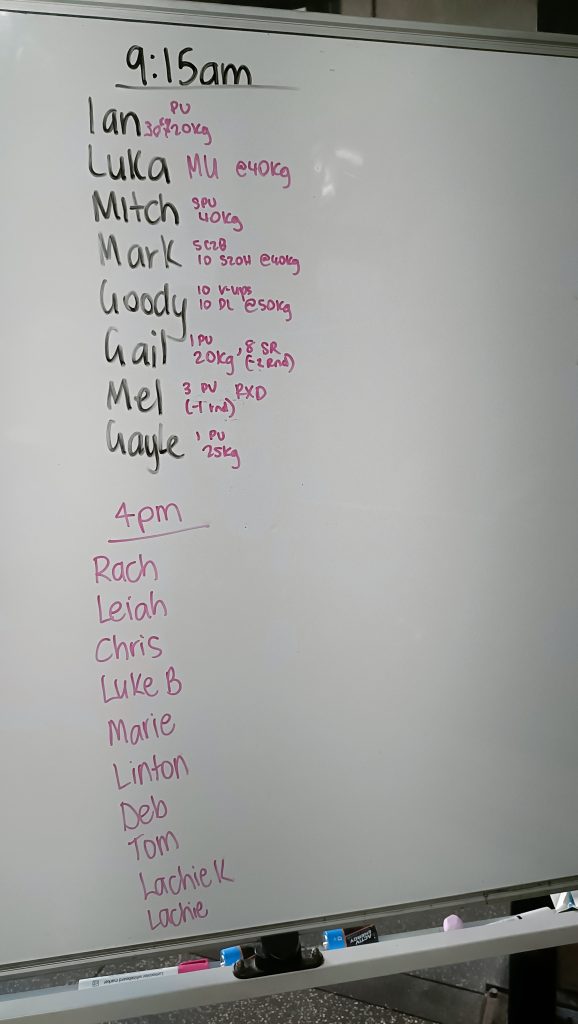 9:15am
Ian PU 20kg
Luka MU @40kg
Mitch 3PU 40kg
Mark 5C2B
10 S2OH @40kg
Goody 10 V-ups
10 DL @50kg
Gail 1 PU
20kg, 8 SR
(-2 Rnd)
Mel 3 PU RXD
(-1 rnd)
Gayle 1 PU
25kg
4pm
Rach
Leiah
Chris
Luke B
Marie
Linton
Deb
Tom
Lachie K
Lachie